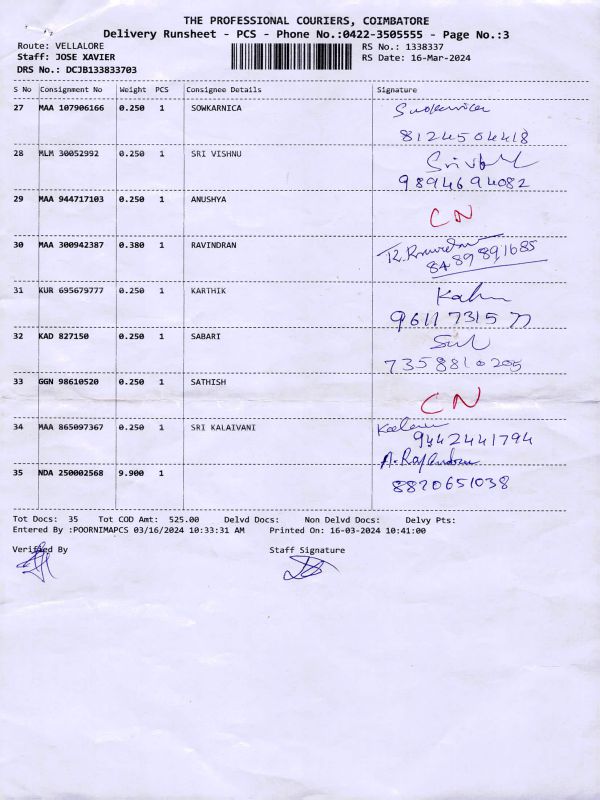 THE PROFESSIONAL COURIERS, COIMBATORE
Delivery Runsheet - PCS - Phone No.:0422-3505555 - Page No.:3
Route: VELLALORE RS No.: 1338337
Staff: JOSE XAVIER RS Date: 16-Mar-2024
DRS No.: DCJB133833703
S No Consignment No Weight PCS Consignee Details Signature
27 MAA 107906166 0.250 1 SOWKARNICA
8124504418
28 MLM 30052992 0.250 1 SRI VISHNU
9894694082
29 MAA 944717103 0.250 1 ANUSHYA
CN
30 MAA 300942387 0.380 1 RAVINDRAN
8489891685
31 KUR 695679777 0.250 1 KARTHIK
9611731577
32 KAD 827150 0.250 1 SABARI
7358810205
33 GGN 98610520 0.250 1 SATHISH
CN
34 MAA 865097367 0.250 1 SRI KALAIVANI
9442441794
35 NDA 250002568 9.900 1
8820651038
Tot Docs: 35 Tot COD Amt: 525.00 Delvd Docs: Non Delvd Docs: Delvy Pts:
Entered By :POORNIMAPCS 03/16/2024 10:33:31 AM Printed On: 16-03-2024 10:41:00
Verified By Staff Signature